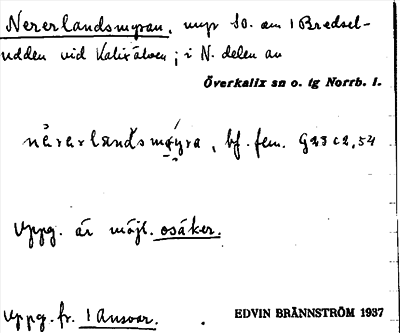 Nererlandsmyran, myr SO. om 1 Bredsel-
udden vid Kalixälven; i N. delen av
Överkalix sn o. tg Norrb. l.
bf. fem. G23 c2, 54
Uppg. är möjl. osäker.
Uppg. fr. 1 Ansvar.
EDVIN BRÄNNSTRÖM 1937